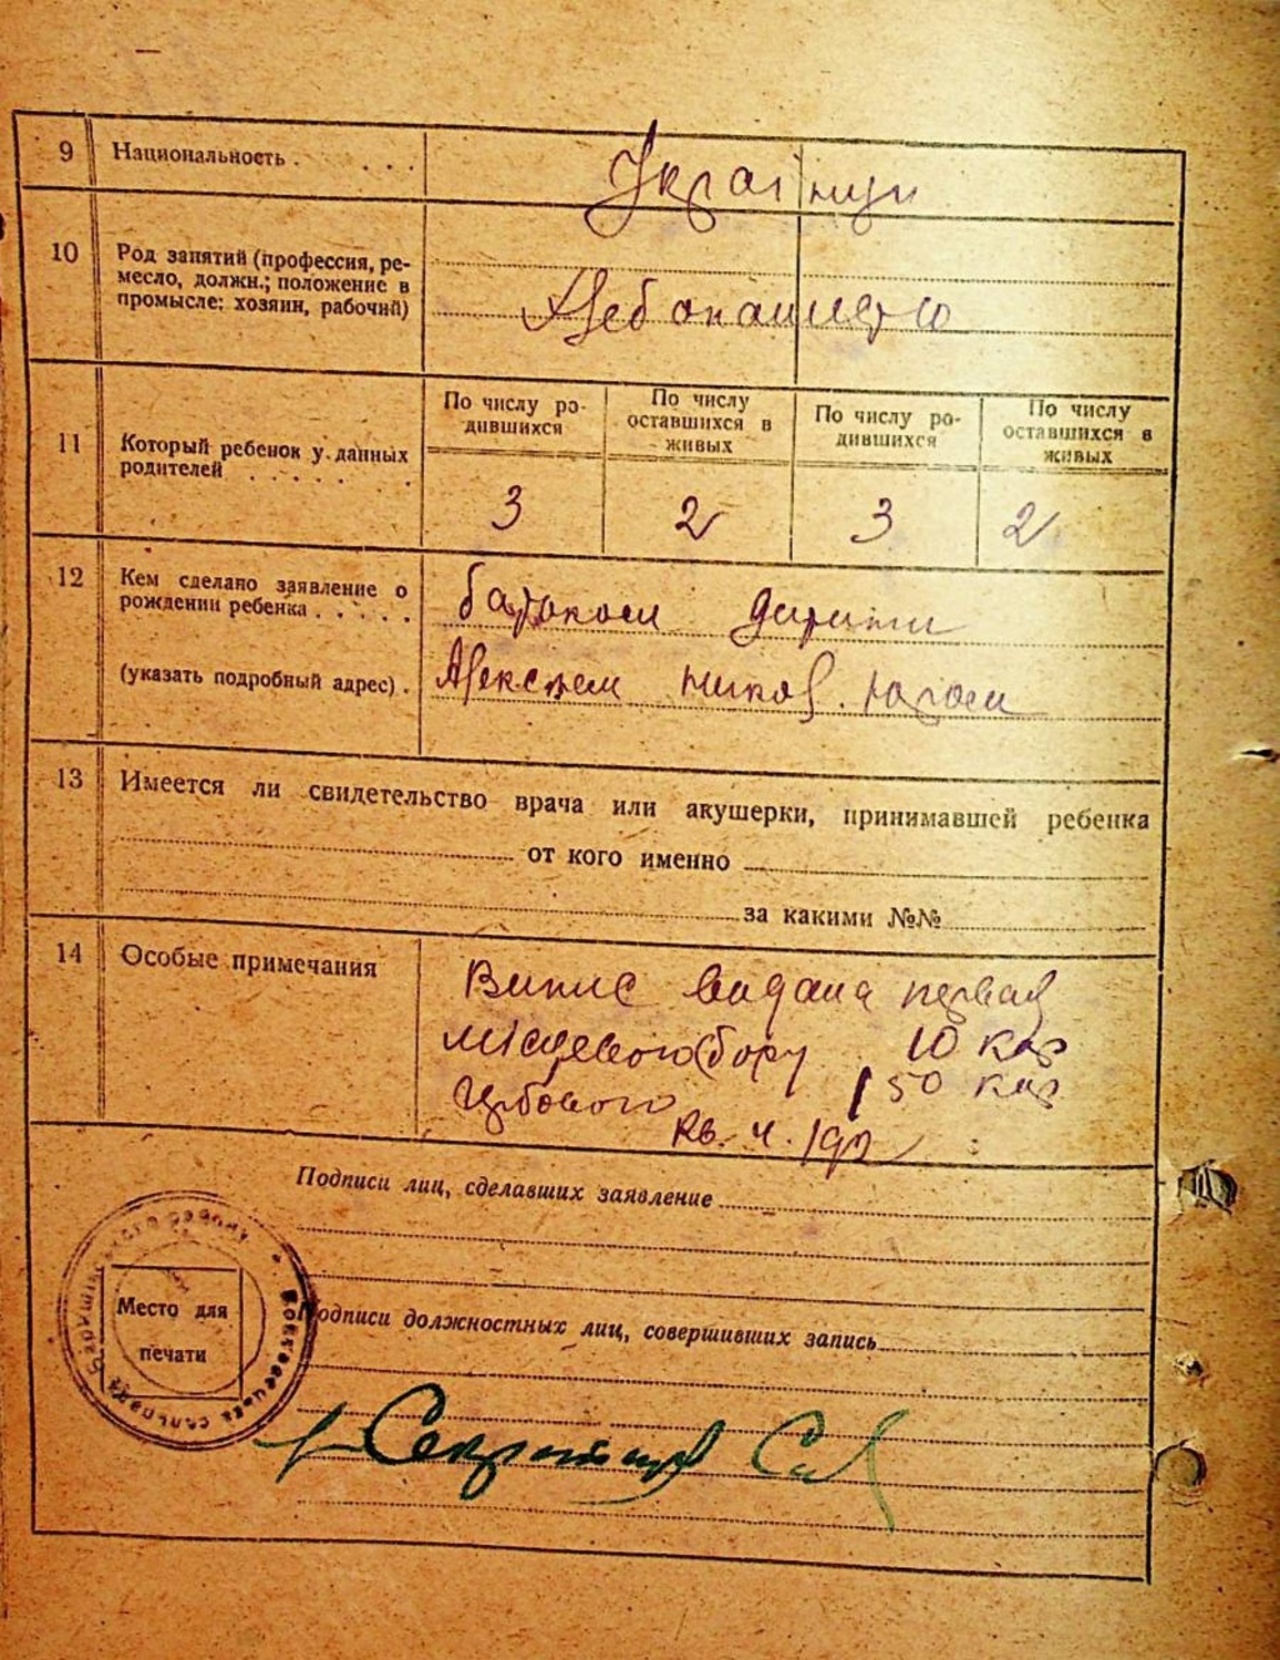 9 Национальность . . . .
Українци
10 Род занятий (профессия, ре-
месло, должн.; положение в
промысле: хозяин, рабочий)
Хлебопашетво
11 Который ребенок у данных
родителей . . . . . .
По числу ро-
дившихся
По числу
оставшихся в
живых
По числу ро-
дившихся
По числу
оставшихся в
живых
3 2 3 2
12 Кем сделано заявление о
рождении ребенка . . . . .
(указать подробный адрес) .
батьком дитини
Алексеем Никол.
13 Имеется ли свидетельство врача или акушерки, принимавшей ребенка
от кого именно
за какими №№
14 Особые примечания
Випис видана первая
місцевого сбору 10 коп
гербового 50 коп
Кв. ч.
Подписи лиц, сделавших заявление
Место для
печати
Подписи должностных лиц, совершивших запись
Секретарь